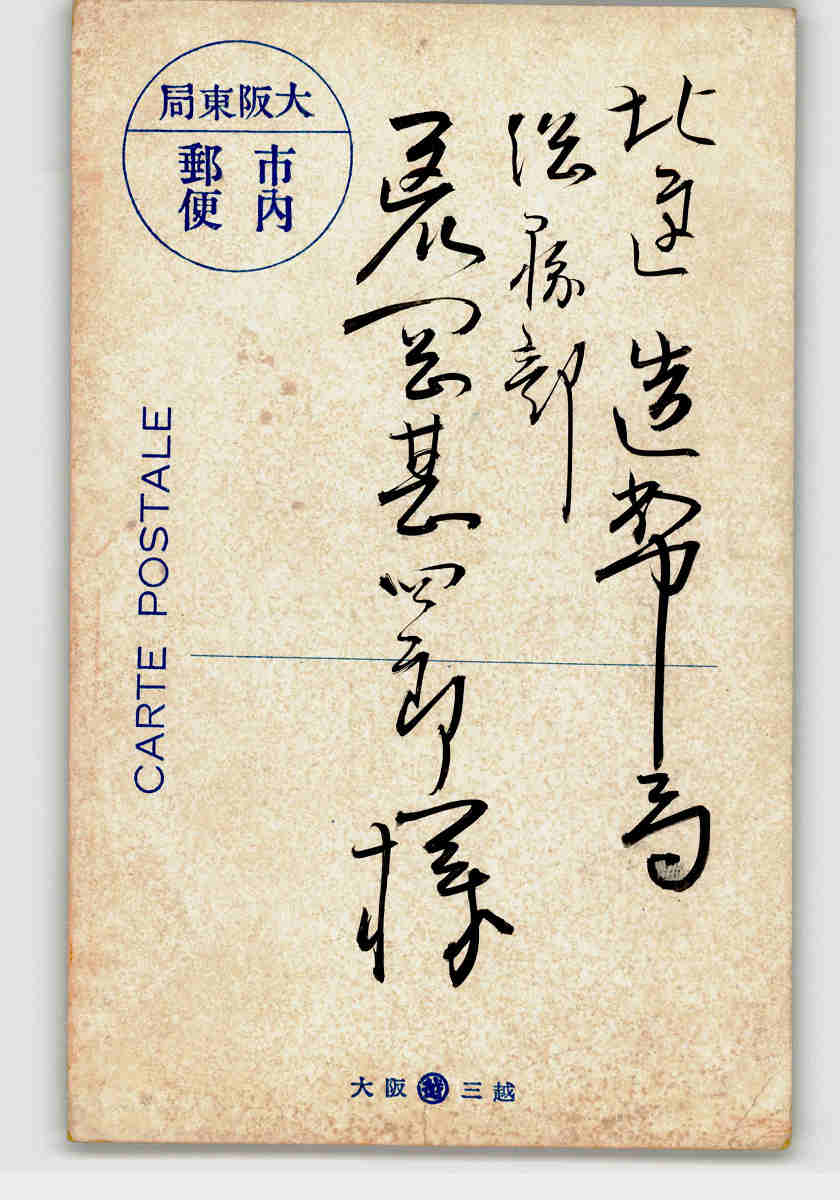 北區造幣局
総務部
岡甚四郎様
大阪東局
市内
郵便
CARTE POSTALE
大阪 越 三越